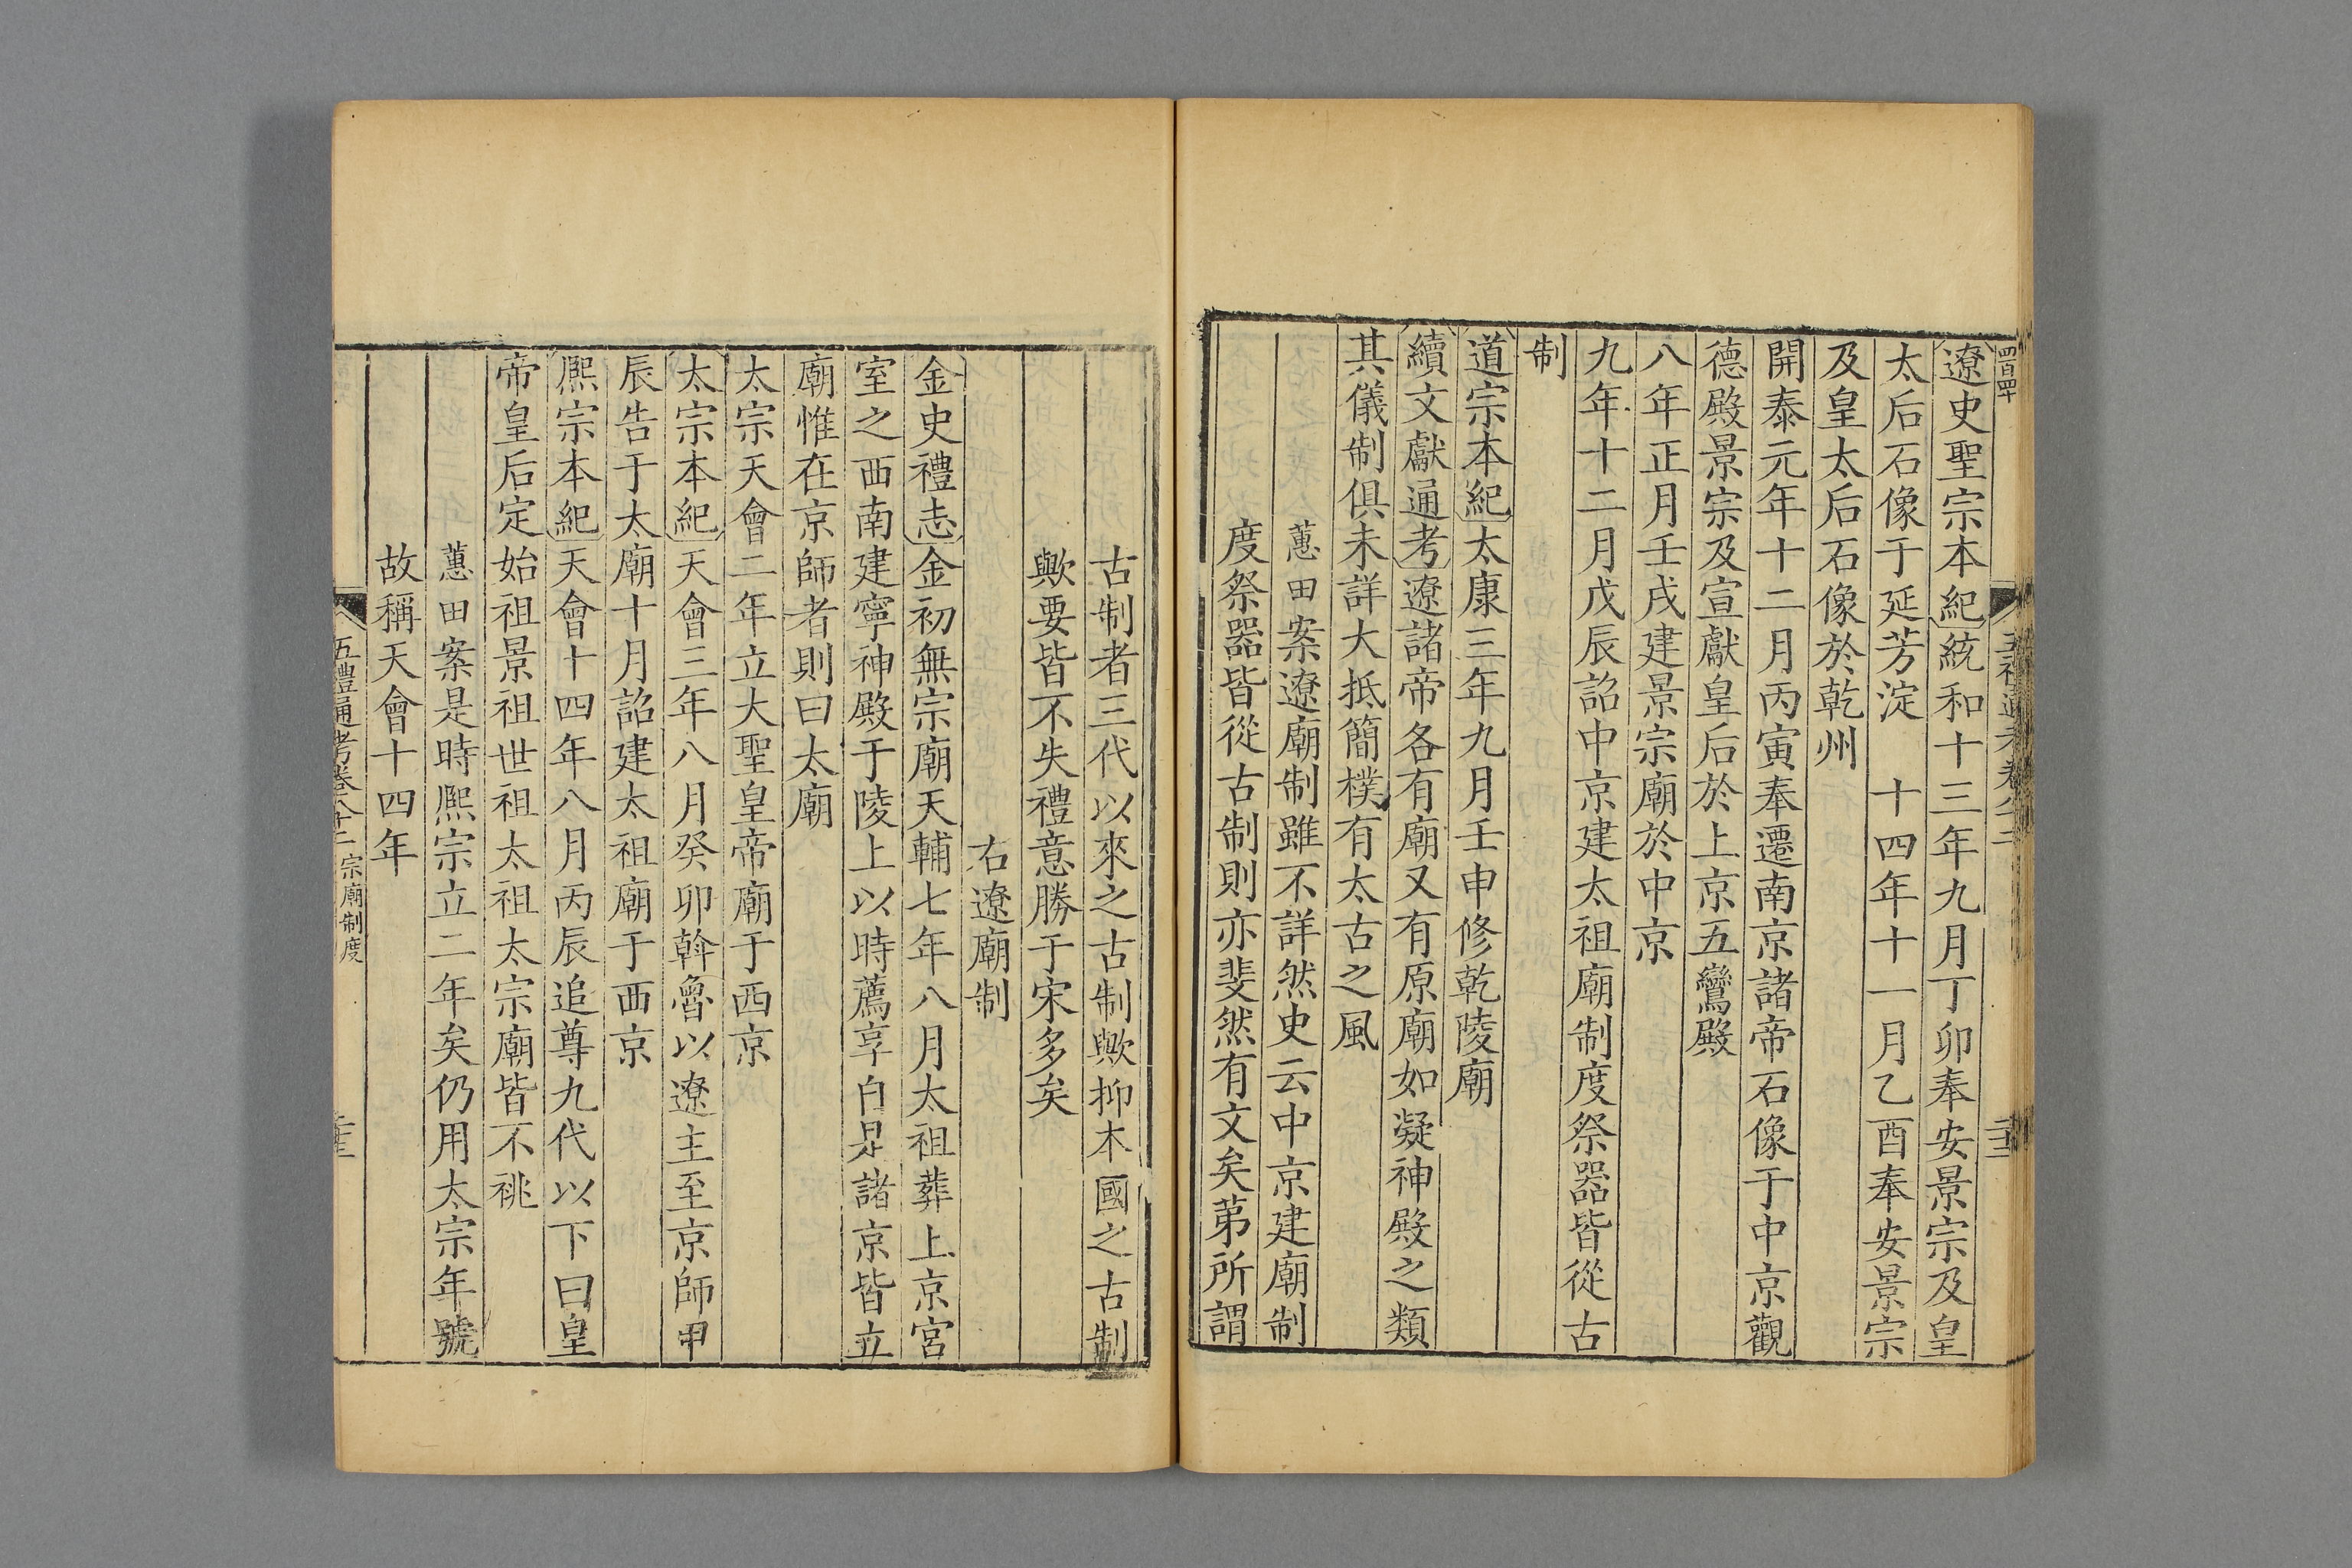 遼史聖宗本紀統和十三年九月丁卯奉安景宗及皇
太后石像于延芳淀　十四年十一月乙酉奉安景宗
及皇太后石像於乾州
開泰元年十二月丙寅奉遷南京諸帝石像于中京觀
德殿景宗及宣獻皇后於上京五鸞殿
八年正月壬戌建景宗廟於中京
九年十二月戊辰詔中京建太祖廟制度祭器皆從古
制
道宗本紀太康三年九月壬申修乾陵廟
續文獻通考遼諸帝各有廟又有原廟如凝神殿之類
其儀制俱未詳大抵簡樸有太古之風
蕙田案遼廟制雖不詳然史云中京建廟制
度祭器皆從古制則亦斐然有文矣苐所謂
古制者三代以來之古制歟抑本國之古制
歟要皆不失禮意勝于宋多矣
右遼廟制
金史禮志金初無宗廟天輔七年八月太祖葬上京宮
室之西南建寧神殿于陵上以時薦享自是諸京皆立
廟惟在京師者則曰太廟
太宗天會二年立大聖皇帝廟于西京
太宗本紀天會三年八月癸卯斡魯以遼主至京師甲
辰告于太廟十月詔建太祖廟于西京
熈宗本紀天會十四年八月丙辰追尊九代以下曰皇
帝皇后定始祖景祖世祖太祖太宗廟皆不祧
蕙田案是時熈宗立二年矣仍用太宗年號
故稱天會十四年
五禮通考卷八十二　宗廟制度